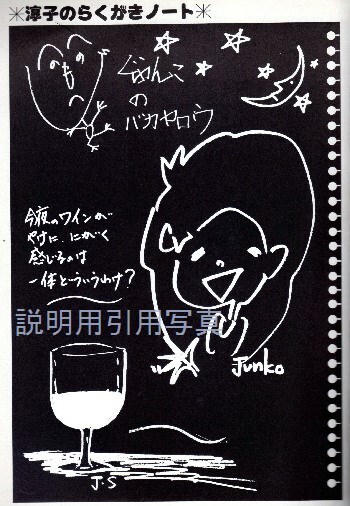 ✳淳子のらくがきノート✳
へのへの
も
へ
ぐゎんこ
の
バカヤロウ
今夜のワインが
やけに、にがく
感じるのは
一体どういうわけ?
説明用引用写真
Junko
J・S